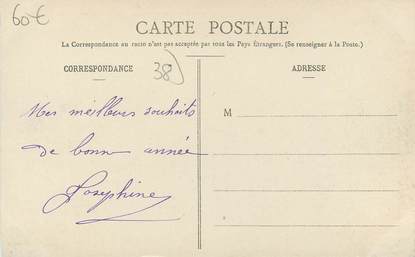 60€
CARTE POSTALE
La Correspondance au recto n'est pas acceptée par tous les Pays étrangers. (Se renseigner à la Poste.)
CORRESPONDANCE
38
ADRESSE
Mes meilleurs souhaits
de bonne année
Joséphine
M